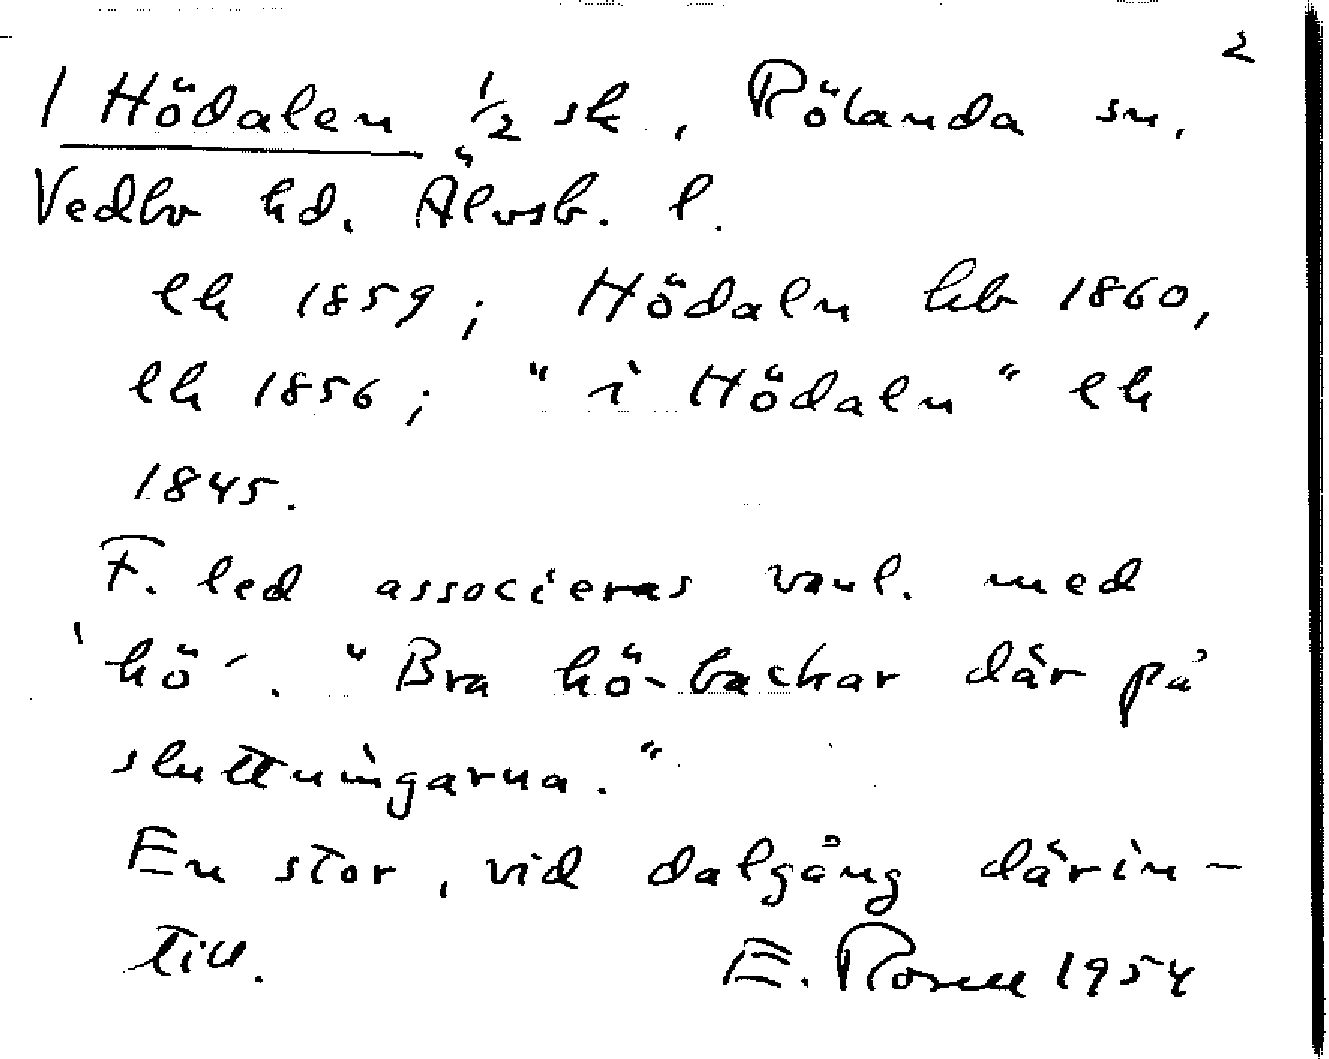 2
1 Hödalen ½ sk, Rölanda sn,
Vedbo hd. Älvsb. l.
lh 1859; Hödaln hb 1860,
lh 1856; "i Hödaln" lh
1845.
F. led associeras vanl. med
'hö'. "Bra hö-backar där på
sluttningarna."
En stor, vid dalgång därin-
till. E. Rosell 1954